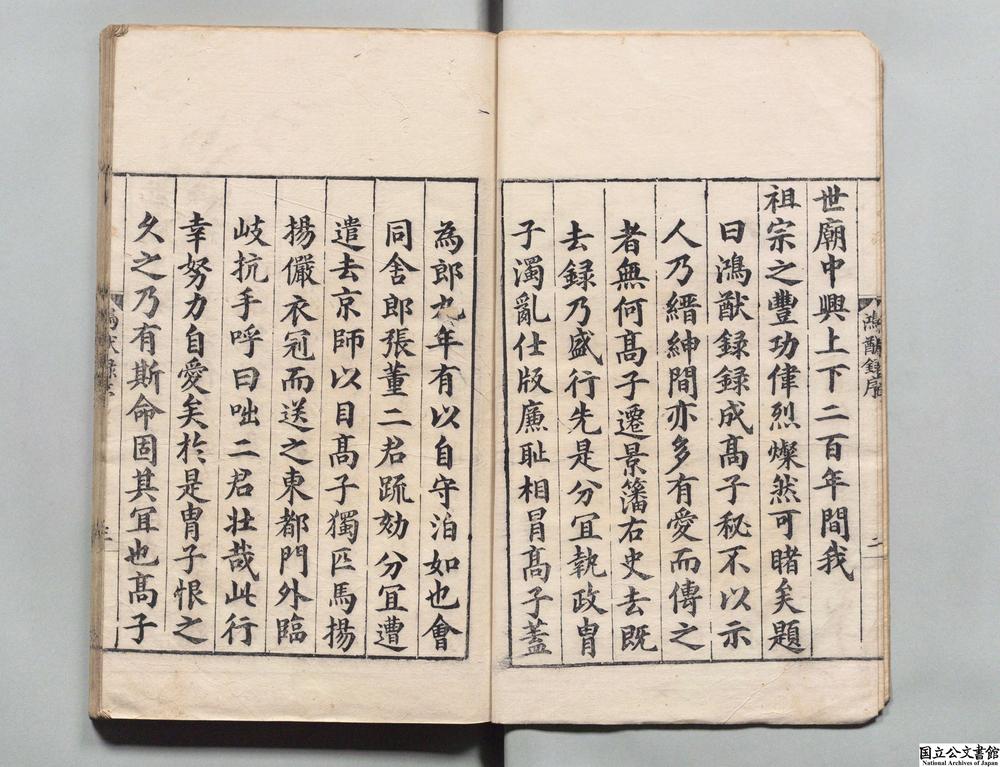 世廟中興上下二百年間我
祖宗之豐功偉烈燦然可睹矣題
曰鴻猷錄錄成髙子秘不以示
人乃縉紳間亦多有愛而傳之
者無何髙子遷景籓右史去既
去録乃盛行先是分宜執政冑
子濁亂仕版廉耻相冐髙子蓋
鴻猷錄序
二
為郎九年有以自守泊如也會
同舍郎張董二君䟽劾分宜遭
遣去京師以目髙子獨匹馬揚
揚儼衣冠而送之東都門外臨
岐抗手呼曰咄二君壯哉此行
幸努力自愛矣於是冑子恨之
久之乃有斯命固其冝也髙子
国立公文書館
National Archives of Japan